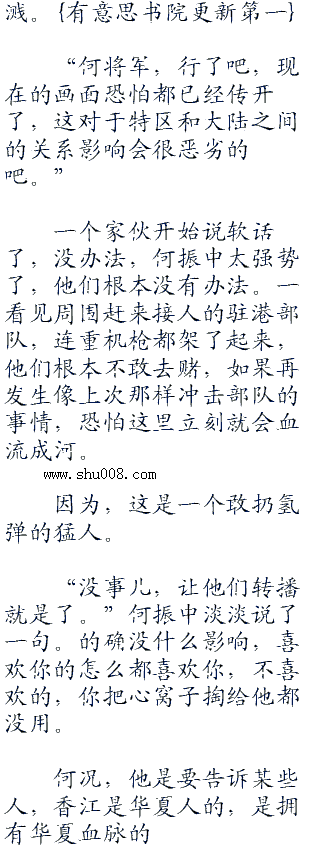 溅。{有意思书院更新第一}
“何将军，行了吧，现
在的画面恐怕都已经传开
了，这对于特区和大陆之间
的关系影响会很恶劣的
吧。”
一个家伙开始说软话
了，没办法，何振中太强势
了，他们根本没有办法。一
看见周围赶来接人的驻港部
队，连重机枪都架了起来，
他们根本不敢去赌，如果再
发生像上次那样冲击部队的
事情，恐怕这里立刻就会血
流成河。
www.shu008.com
因为，这是一个敢扔氢
弹的猛人。
“没事儿，让他们转播
就是了。”何振中淡淡说了
一句。的确没什么影响，喜
欢你的怎么都喜欢你，不喜
欢的，你把心窝子掏给他都
没用。
何况，他是要告诉某些
人，香江是华夏人的，是拥
有华夏血脉的